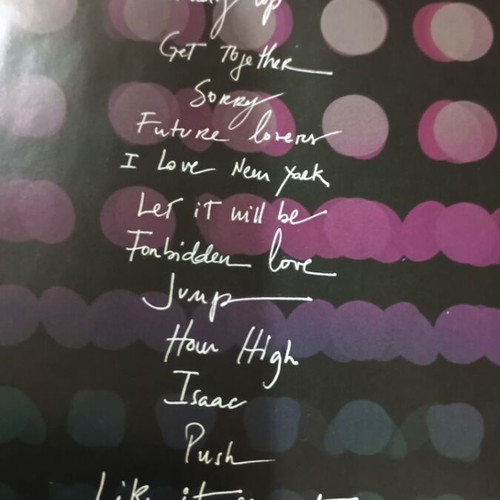 up
Get Together
Sorry
Future lovers
I Love New York
Let it will be
Forbidden love
Jump
How High
Isaac
Push
Like it